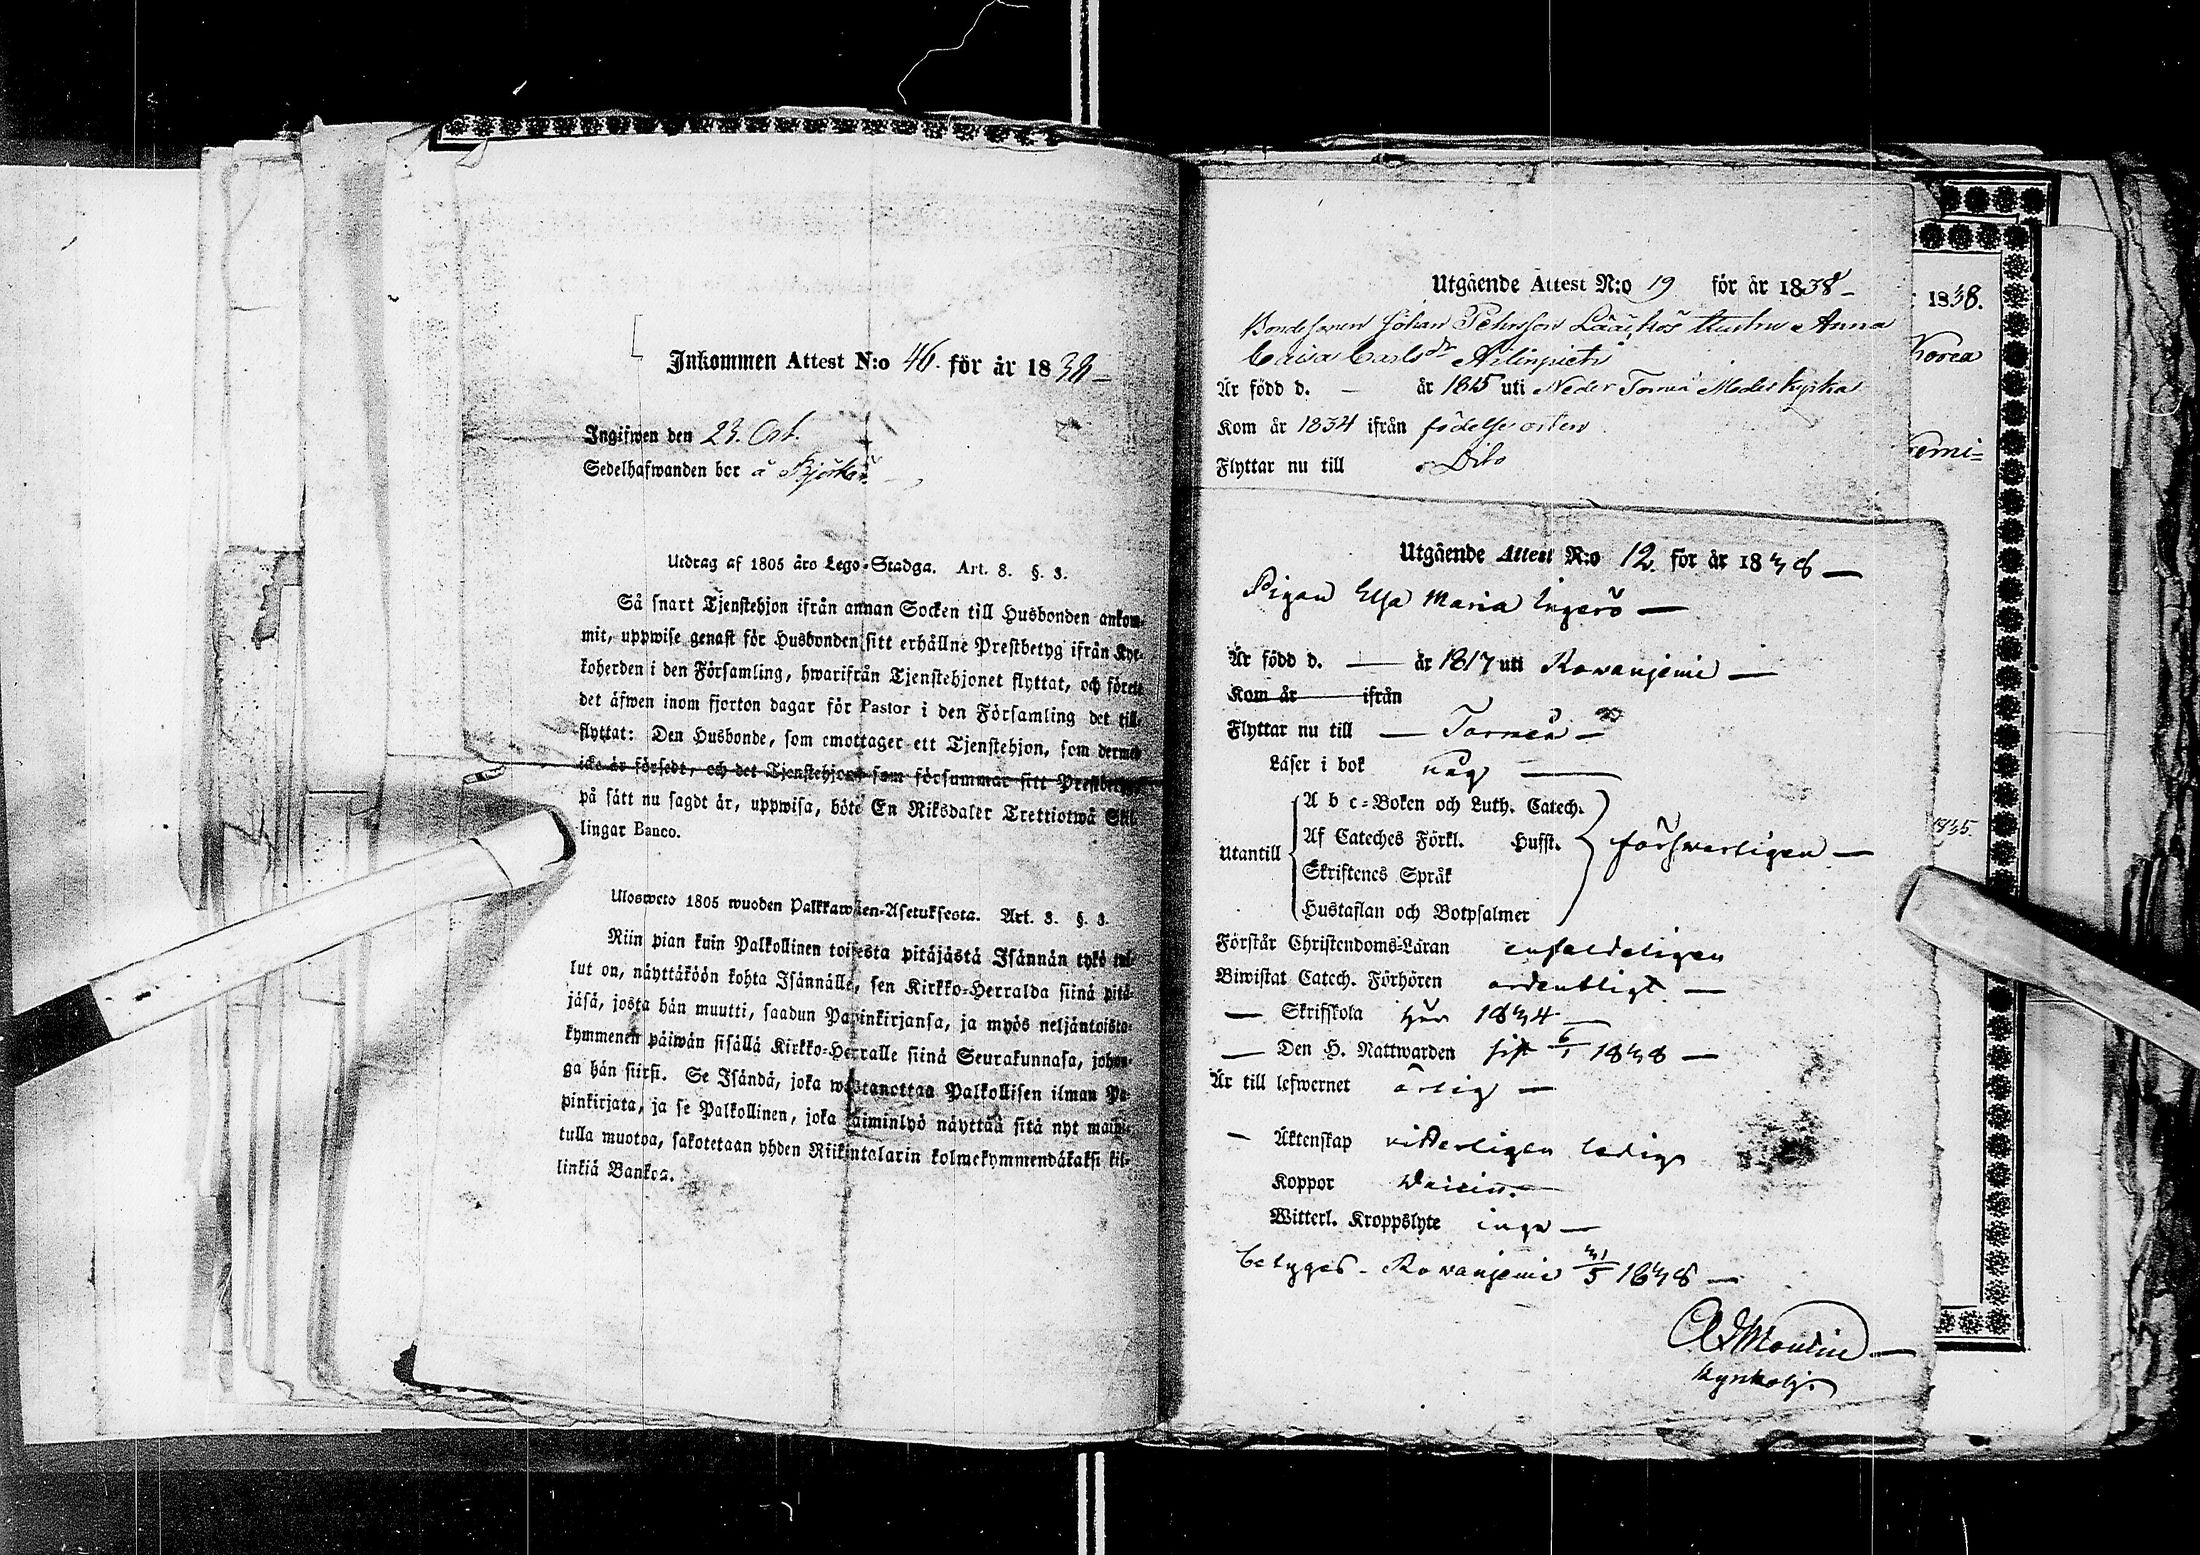 Inkommen Attest N:o 46. för år 1838
Ingifwen den 23. Oct.
Sedelhafwanden bor å Björkön
Utdrag af 1805 års Lego-Stadga. Art. 8. §. 3.
Så snart Tjenstehjon ifrån annan Socken till Husbonden ankom-
mit, uppwise genast för Husbonden sitt erhållne Prestbetyg ifrån Kyr-
koherden i den Församling, hwarifrån Tjenstehjonet flyttat, och förete
det äfwen inom fjorton dagar för Pastor i den Församling det till-
flyttat: Den Husbonde, som emottager ett Tjenstehjon, som dermed
icke är försedt, och det Tjenstehjon som försummar sitt Prestbetyg,
på sätt nu sagdt är, uppwisa, böte En Riksdaler Trettiotwå Skil-
lingar Banco.
Ulosweto 1805 wuoden Palkkawäen-Asetuksesta. Art. 8. §. 3.
Niin pian kuin Palkollinen toisesta pitäjästä Isännän tykö tul-
lut on, näyttäköön kohta Isännälle, sen Kirkko-Herralda siinä pitä-
jäsä, josta hän muutti, saadun Papinkirjansa, ja myös neljäntoista-
kymmenen päiwän sisällä Kirkko-Herralle siinä Seurakunnasa, johon-
ga hän siirsi. Se Isändä, joka wastanottaa Palkollisen ilman Pa-
pinkirjata, ja se Palkollinen, joka laiminlyö näyttää sitä nyt mainit-
tulla muotoa, sakotetaan yhden Riikintalarin kolmekymmendäkaksi kil-
linkiä Bankos.
Utgående Attest N:o 19 för år 1838
Bondesonen Johan Pehrsson Hustru Anna
Caisa Carlsdr
Är född d. — år 1815 uti Neder Torneå Moderkyrka
Kom år 1834 ifrån födelse orten
Flyttar nu till Dito
1838.
Utgående Attest N:o 12. för år 1838 —
Pigan Elsa Maria Ingerö —
Är född d. — år 1817 uti Rovanjemi —
Kom år ifrån
Flyttar nu till — Torneå —
Läser i bok någ —
A b c-Boken och Luth. Catech.
Af Cateches Förkl. Husst.
Utantill försvarligen —
Skriftenes Språk
Hustaflan och Botpsalmer
Förstår Christendoms-Läran enfaldeligen
Biwistat Catech. Förhören ordentligt —
— Skrifskola här 1834 —
— Den H. Nattwarden sist 6/1 1838 —
Är till lefwernet ärlig —
— Äktenskap vitterligen ledig
Koppor Vaccin. —
Witterl. Kroppslyte inga —
betygas - Rovanjemi 31/5 1838 —